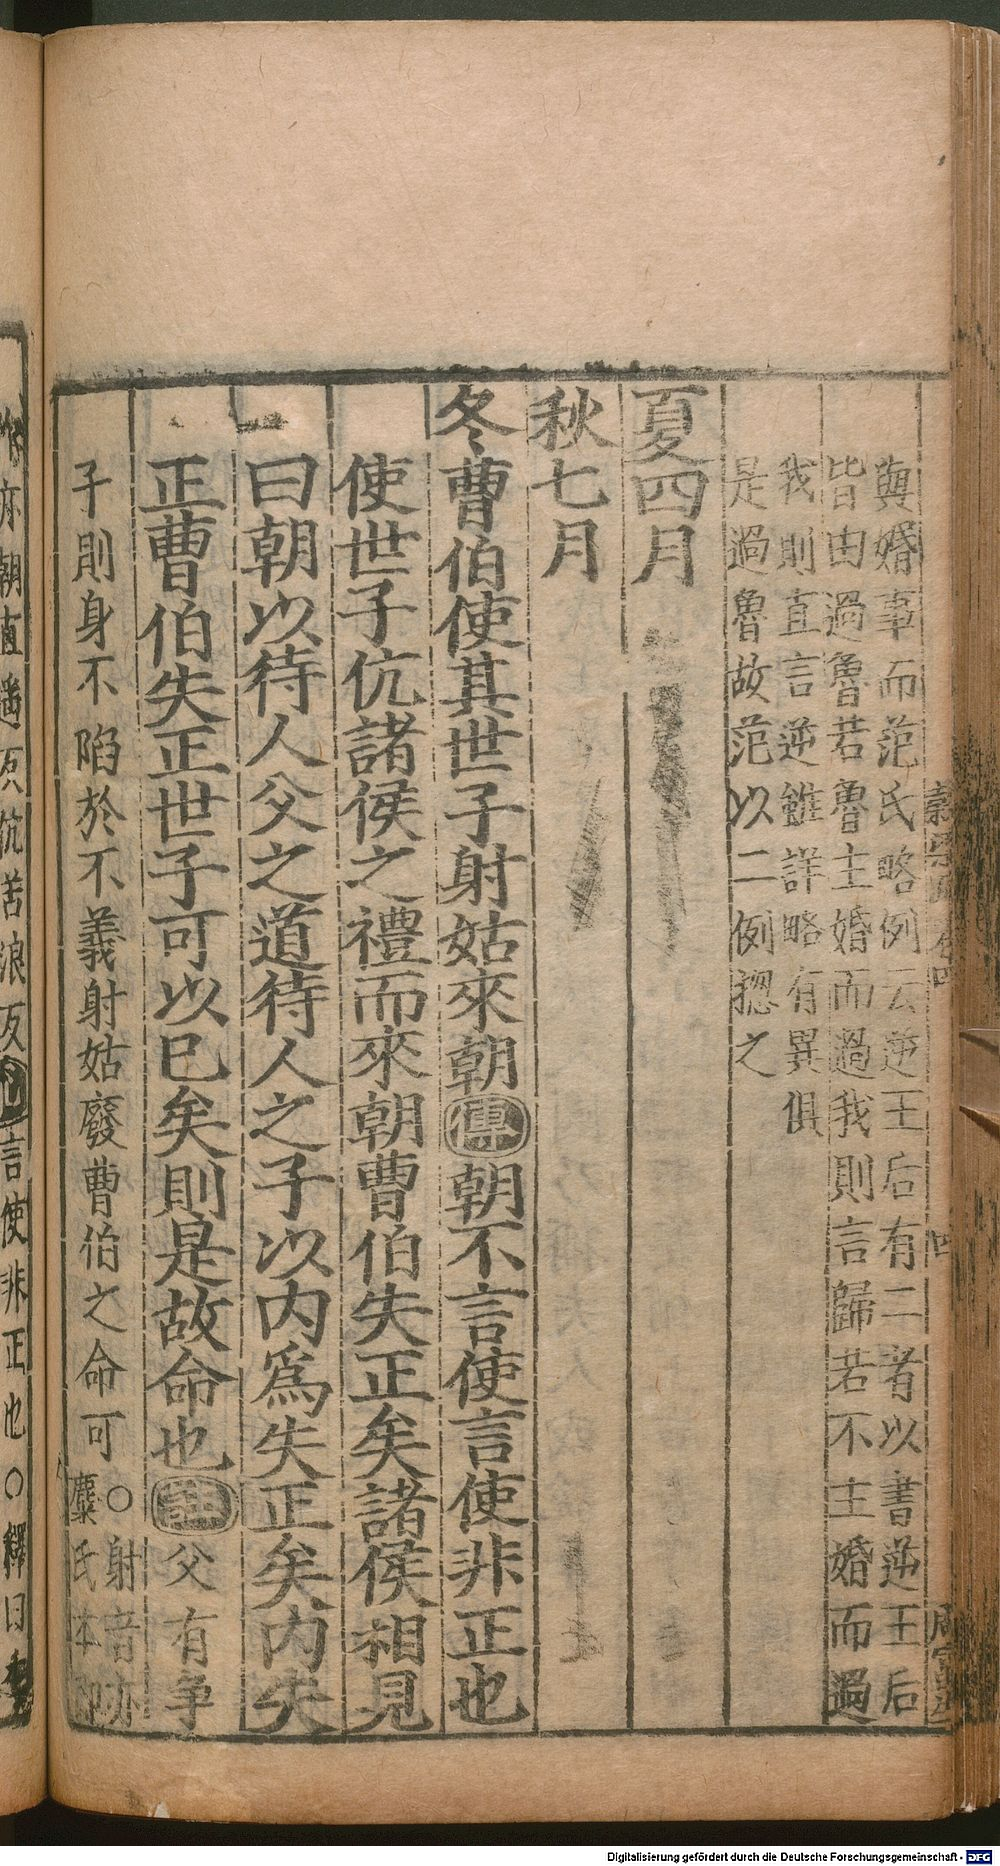 與婚事而范氏略例云逆王后有二者以書逆王后
皆由過魯若魯主婚而過我則言歸若不主婚而過
我則直言逆雖詳略有異俱
是過魯故范以二例揔之
夏四月
秋七月
冬曹伯使其世子射姑來朝傳朝不言使言使非正也
使世子伉諸侯之禮而來朝曹伯失正矣諸侯相見
曰朝以待人父之道待人之子以内爲失正矣内失
正曹伯失正世子可以已矣則是故命也註父有爭
子則身不陷於不義射姑廢曹伯之命可
○射音亦
麋氏本卽
亦朝直遥反伉苦浪反
言使非正也○釋曰
Digitalisierung gefördert durch die Deutsche Forschungsgemeinschaft - DFG